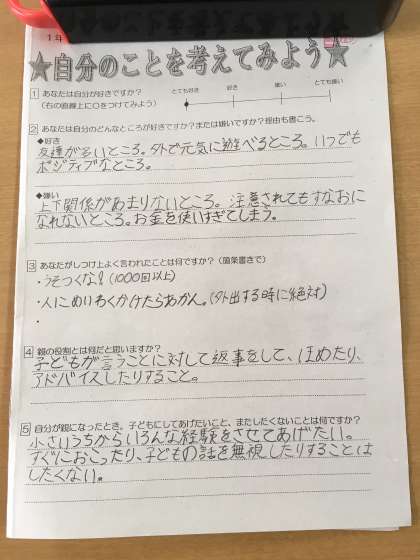 1年
★自分のことを考えてみよう★
1 あなたは自分が好きですか?
(右の直線上に○をつけてみよう)
とても好き 好き 嫌い とても嫌い
2 あなたは自分のどんなところが好きですか?または嫌いですか?理由も書こう。
◆好き
友達が多いところ。外で元気に遊べるところ。いつでも
ポジティブなところ。
◆嫌い
上下関係があまりないところ。注意されてもすなおに
なれないところ。お金を使いすぎてしまう。
3 あなたがしつけ上よく言われたことは何ですか?(箇条書きで)
・うそつくな!(1000回以上)
・人にめいわくかけたらあかん。(外出する時に絶対)
・
4 親の役割とは何だと思いますか?
子どもが言うことに対して返事をして、ほめたり、
アドバイスしたりすること。
5 自分が親になったとき、子どもにしてあげたいこと、またしたくないことは何ですか?
小さいうちからいろんな経験をさせてあげたい。
すぐにおこったり、子どもの話を無視したりすることは
したくない。